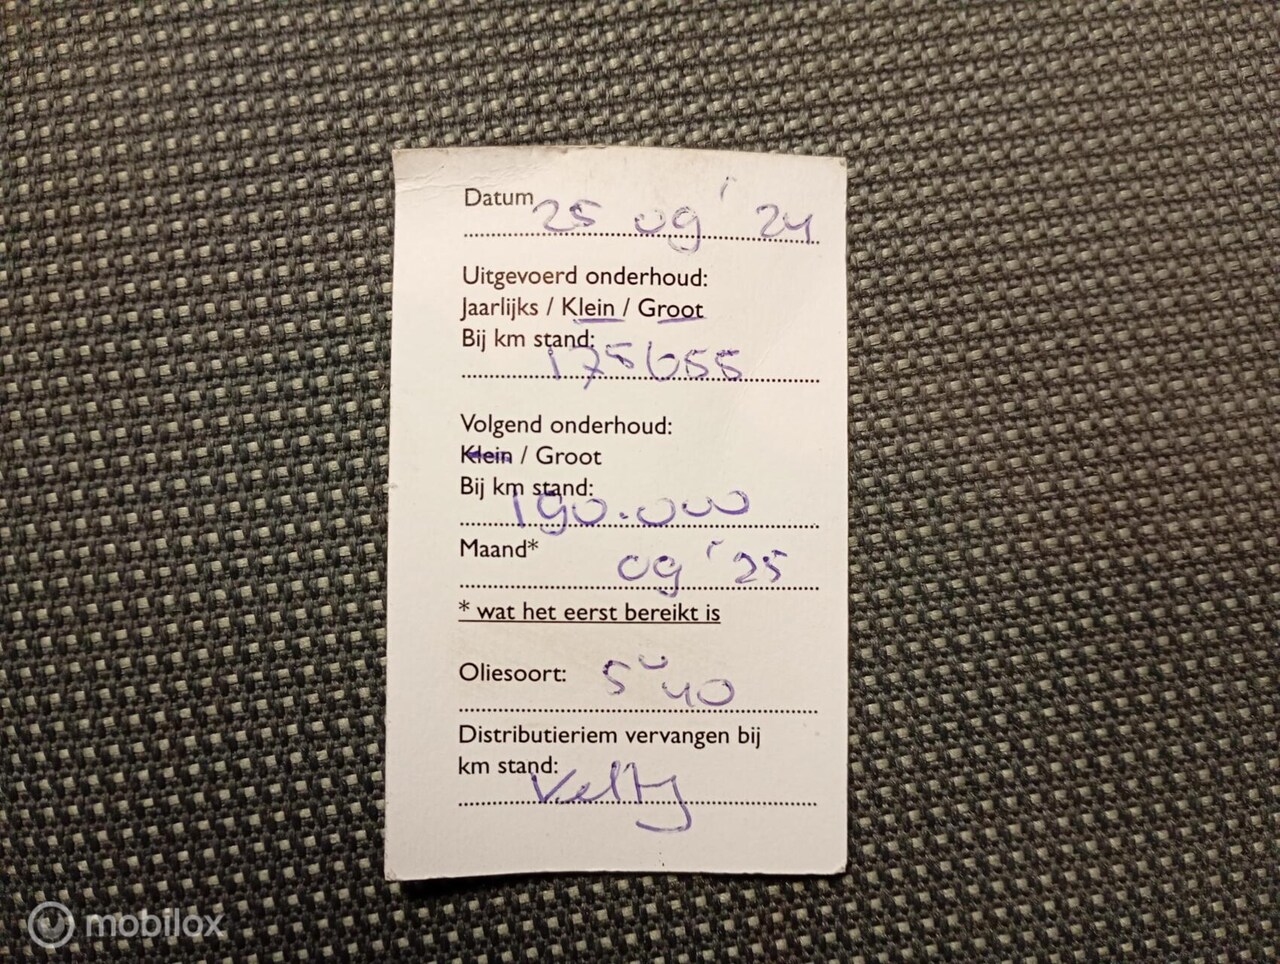 Datum 25 09 '24
Uitgevoerd onderhoud:
Jaarlijks / Klein / Groot
Bij km stand:
175655
Volgend onderhoud:
Klein / Groot
Bij km stand:
190.000
Maand* 09 '25
* wat het eerst bereikt is
Oliesoort: 5 40
Distributieriem vervangen bij
km stand:
mobilox